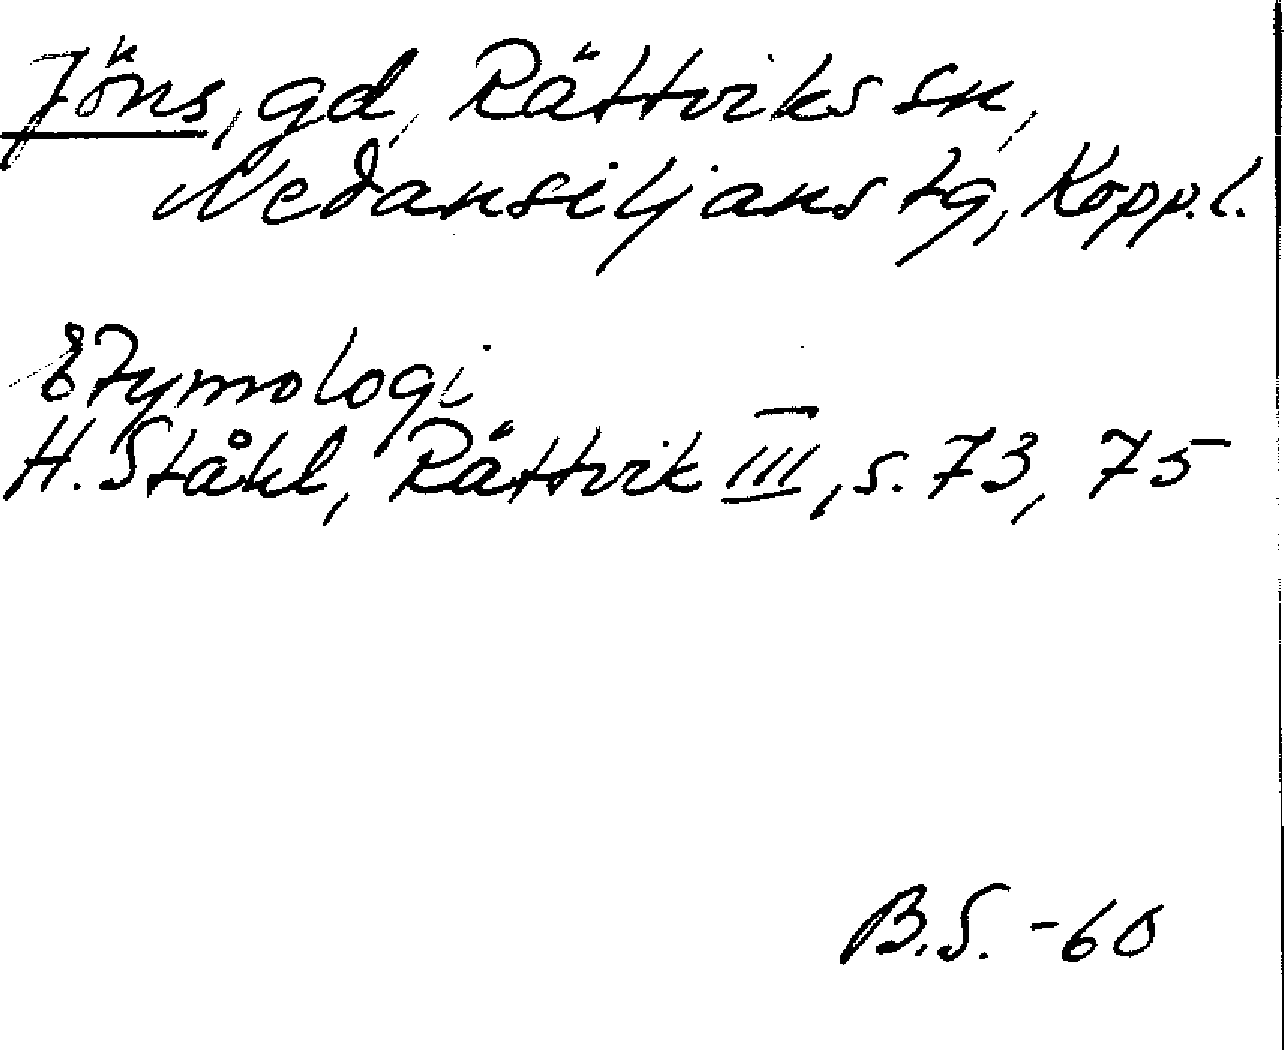 Jöns, gd, Rättviks sn,
Nedansiljans tg, Kopp.l.
Etymologi
H. Ståhl, Rättvik III, s. 73, 75
B.S. -60